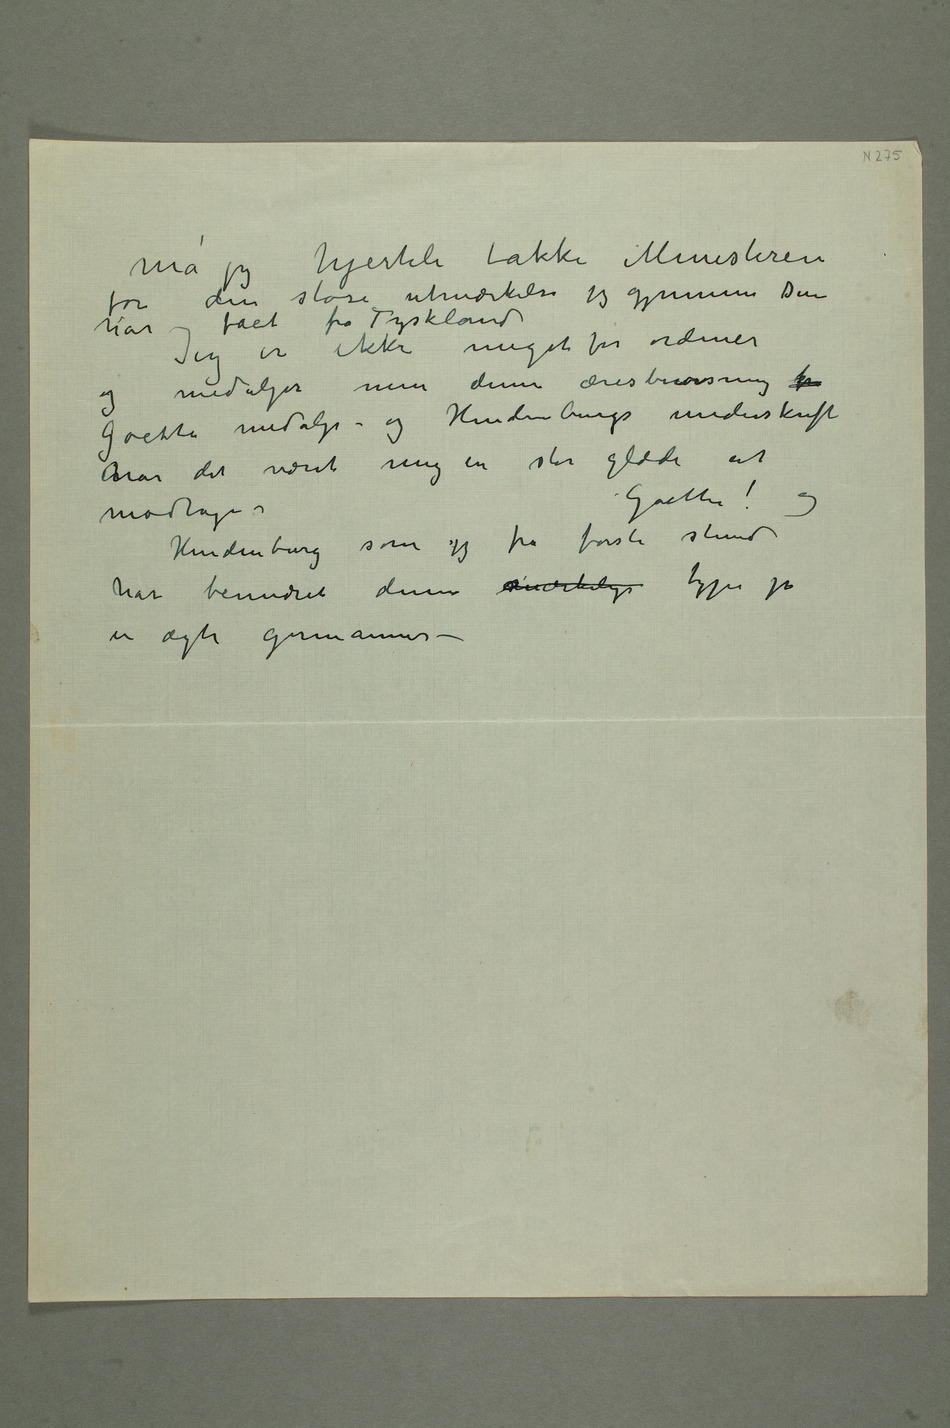 N 275
Må jeg hjerteli takke Ministeren
for den store utmærkelse jeg gjennem Dem
har få̊et fra Tyskland
Jeg er ikke meget for ordener
og medaljer men denne æresbevisning
Goethe medalje – og Hindenburgs underskrift
har det været mig en stor glæde at
modtage –
Goethe! og
Hindenburg som jeg fra første stund
har beundret denne type på
en ægte germanner –